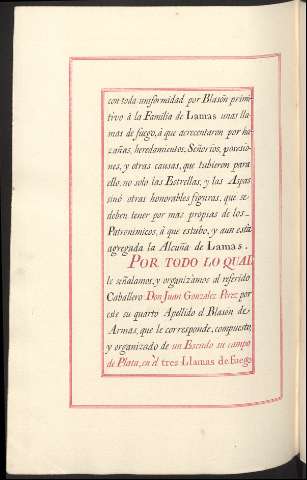 con toda uniformidad por Blasòn primi-
tivo à la Familia de Lamas unas lla-
mas de fuego, à que acrecentaron por ha-
zañas, heredamientos, Señoríos, posesio-
nes, y otras causas, que tubieron para
ello, no solo las Estrellas, y las Aspas
sinò otras honorables figuras, que se-
deben tener por mas propias de los-
Patronimicos, à que estubo, y aun està
agregada la Alcuña de Lamas.
POR TODO LO QUAL
le señalamos, y organizamos al referido
Caballero Don Juan Gonzalez Perez por
este su quarto Apellido el Blason de-
Armas, que le corresponde, compuesto,
y organizado de un Escudo su campo
de Plata, en èl tres Llamas de fuego